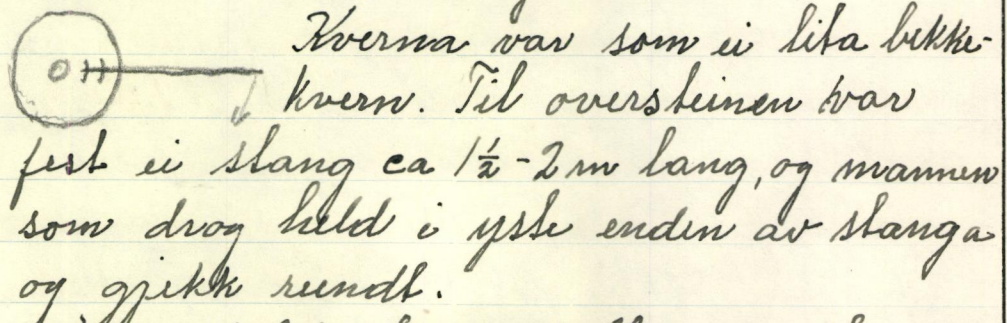 Kverna var som ei lita bekke-
kvern. Til oversteinen var
fest ei stang ca 1½-2 m lang, og mannen
som drog held i yste enden av stanga
og gjekk rundt.